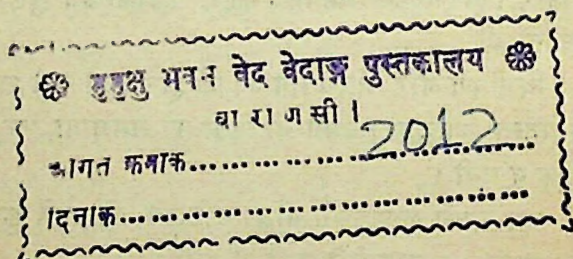 ❀ मुमुक्षु भवन वेद वेदाङ्ग पुस्तकालय ❀
वा रा ण सी ।
आगत क्रमाक.................. 2012
दिनाक..............................